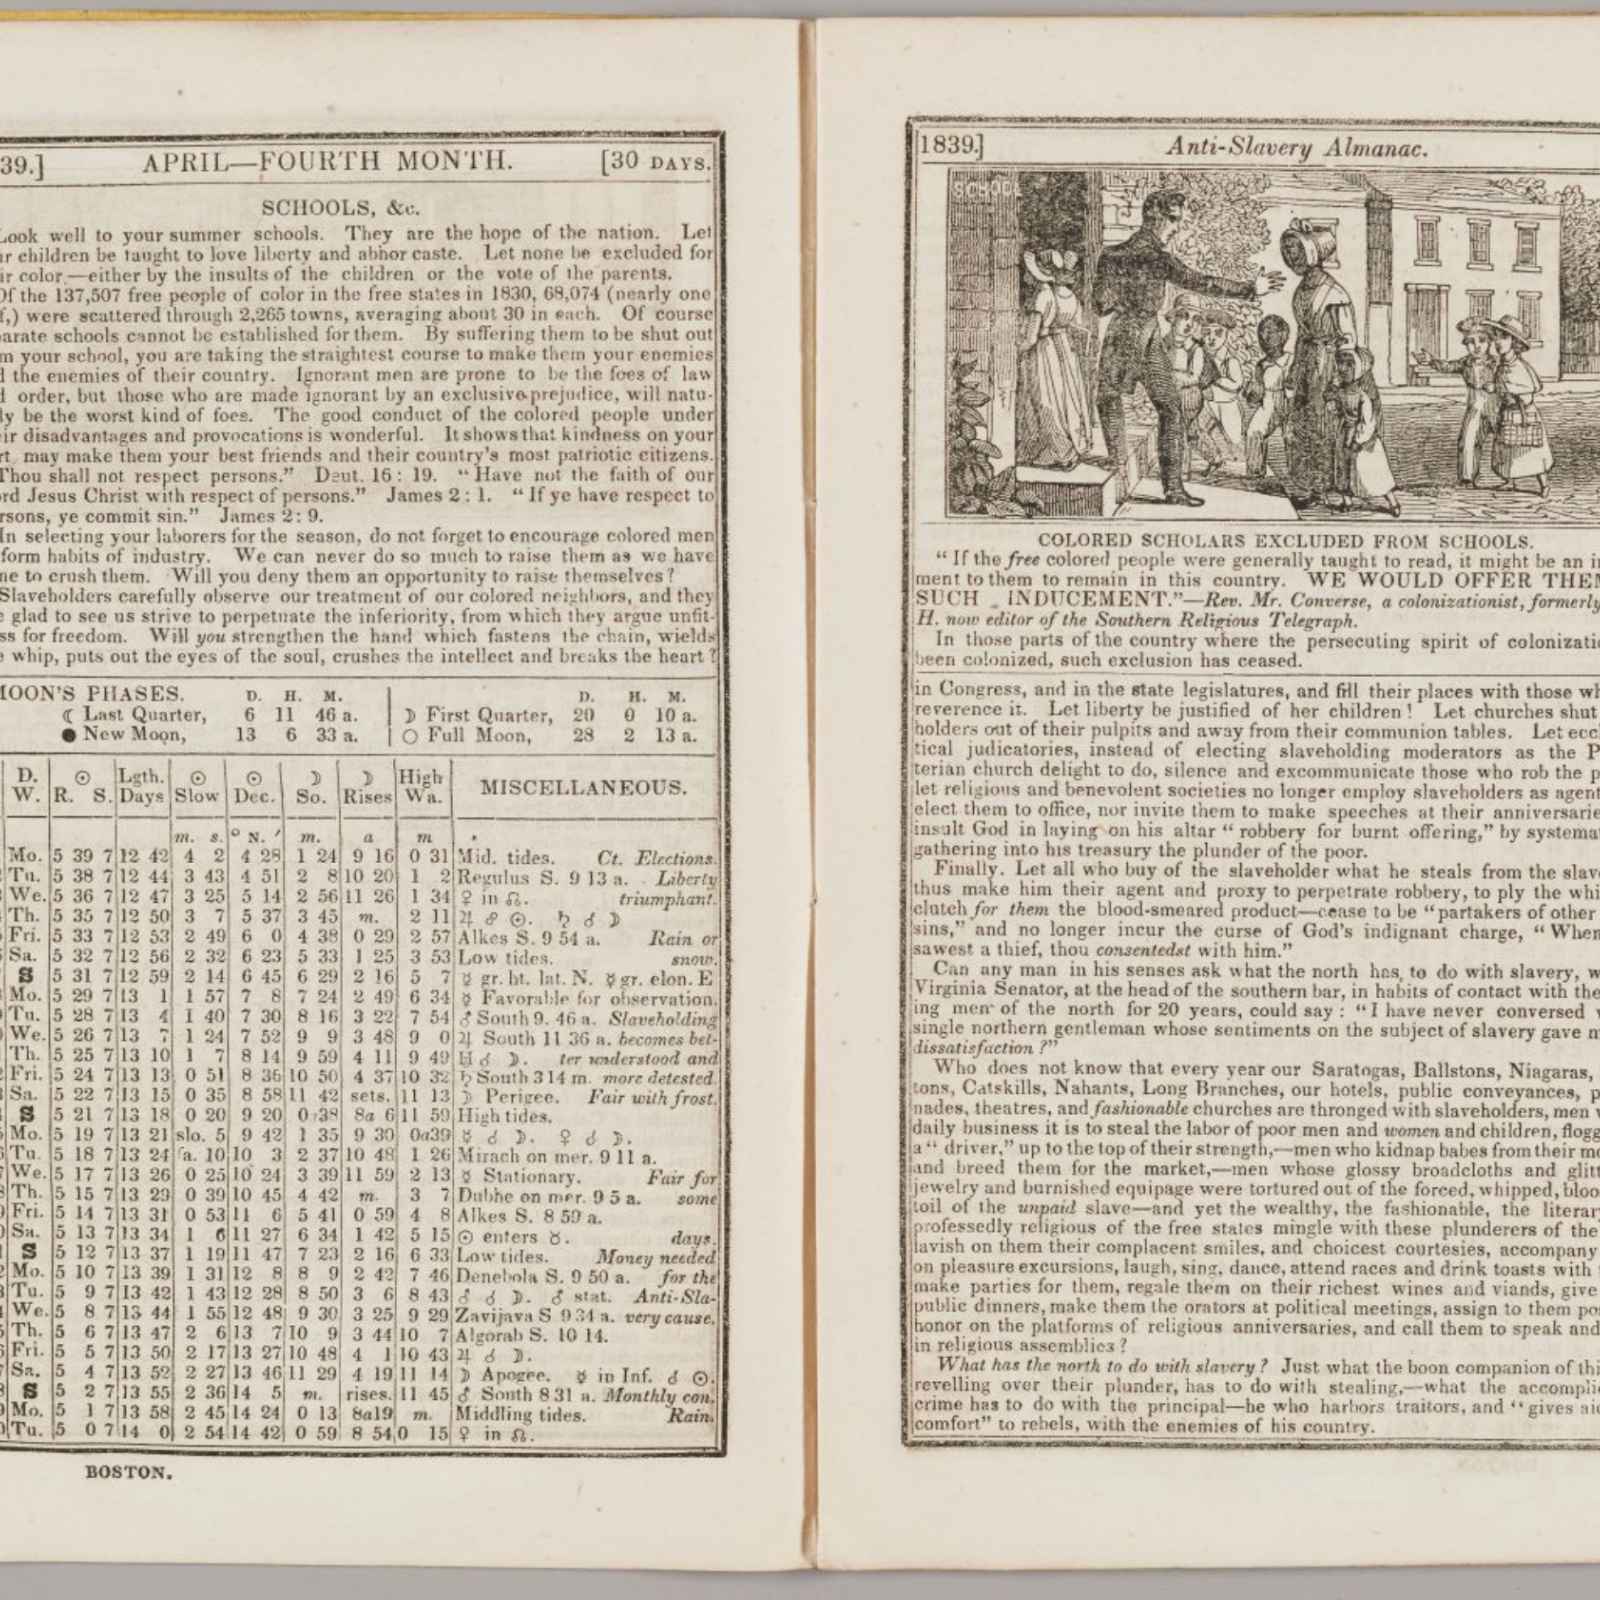 39.] APRIL—FOURTH MONTH. [30 DAYS.
SCHOOLS, &c.
Look well to your summer schools. They are the hope of the nation. Let
r children be taught to love liberty and abhor caste. Let none be excluded for
ir color,—either by the insults of the children or the vote of the parents.
Of the 137,507 free people of color in the free states in 1830, 68,074 (nearly one
f,) were scattered through 2,265 towns, averaging about 30 in each. Of course
arate schools cannot be established for them. By suffering them to be shut out
m your school, you are taking the straightest course to make them your enemies
d the enemies of their country. Ignorant men are prone to be the foes of law
d order, but those who are made ignorant by an exclusive prejudice, will natu-
ly be the worst kind of foes. The good conduct of the colored people under
ir disadvantages and provocations is wonderful. It shows that kindness on your
rt may make them your best friends and their country's most patriotic citizens.
Thou shall not respect persons." Deut. 16: 19. "Have not the faith of our
ord Jesus Christ with respect of persons." James 2: 1. "If ye have respect to
rsons, ye commit sin." James 2: 9.
In selecting your laborers for the season, do not forget to encourage colored men
form habits of industry. We can never do so much to raise them as we have
ne to crush them. Will you deny them an opportunity to raise themselves?
Slaveholders carefully observe our treatment of our colored neighbors, and they
e glad to see us strive to perpetuate the inferiority, from which they argue unfit-
ss for freedom. Will you strengthen the hand which fastens the chain, wields
e whip, puts out the eyes of the soul, crushes the intellect and breaks the heart?
MOON'S PHASES. D. H. M. D. H. M.
☾ Last Quarter, 6 11 46 a. ☽ First Quarter, 20 0 10 a.
● New Moon, 13 6 33 a. ○ Full Moon, 28 2 13 a.
D. ☉ Lgth. ☉ ☉ ☽ ☽ High MISCELLANEOUS.
W. R. S. Days Slow Dec. So. Rises Wa.
m. s. ° N. ′ m. a m
Mo. 5 39 7 12 42 4 2 4 28 1 24 9 16 0 31 Mid. tides. Ct. Elections.
Tu. 5 38 7 12 44 3 43 4 51 2 8 10 20 1 2 Regulus S. 9 13 a. Liberty
We. 5 36 7 12 47 3 25 5 14 2 56 11 26 1 34 ♀ in ☊. triumphant.
Th. 5 35 7 12 50 3 7 5 37 3 45 m. 2 11 ♃ ☍ ☉. ♄ ☌ ☽
Fri. 5 33 7 12 53 2 49 6 0 4 38 0 29 2 57 Alkes S. 9 54 a. Rain or
Sa. 5 32 7 12 56 2 32 6 23 5 33 1 25 3 53 Low tides. snow.
S 5 31 7 12 59 2 14 6 45 6 29 2 16 5 7 ☿ gr. ht. lat. N. ☿ gr. elon. E
Mo. 5 29 7 13 1 1 57 7 8 7 24 2 49 6 34 ☿ Favorable for observation.
Tu. 5 28 7 13 4 1 40 7 30 8 16 3 22 7 54 ♂ South 9. 46 a. Slaveholding
We. 5 26 7 13 7 1 24 7 52 9 9 3 48 9 0 ♃ South 11 36 a. becomes bet-
Th. 5 25 7 13 10 1 7 8 14 9 59 4 11 9 49 ♅ ☌ ☽. ter understood and
Fri. 5 24 7 13 13 0 51 8 36 10 50 4 37 10 32 ♄ South 3 14 m. more detested.
Sa. 5 22 7 13 15 0 35 8 58 11 42 sets. 11 13 ☽ Perigee. Fair with frost.
S 5 21 7 13 18 0 20 9 20 0 38 8a 6 11 59 High tides.
Mo. 5 19 7 13 21 slo. 5 9 42 1 35 9 30 0a39 ☿ ☌ ☽. ♀ ☌ ☽.
Tu. 5 18 7 13 24 fa. 10 10 3 2 37 10 48 1 26 Mirach on mer. 9 11 a.
We. 5 17 7 13 26 0 25 10 24 3 39 11 59 2 13 ☿ Stationary. Fair for
Th. 5 15 7 13 29 0 39 10 45 4 42 m. 3 7 Dubhe on mer. 9 5 a. some
Fri. 5 14 7 13 31 0 53 11 6 5 41 0 59 4 8 Alkes S. 8 59 a.
Sa. 5 13 7 13 34 1 6 11 27 6 34 1 42 5 15 ☉ enters ♉. days.
S 5 12 7 13 37 1 19 11 47 7 23 2 16 6 33 Low tides. Money needed
Mo. 5 10 7 13 39 1 31 12 8 8 9 2 42 7 46 Denebola S. 9 50 a. for the
Tu. 5 9 7 13 42 1 43 12 28 8 50 3 6 8 43 ♂ ☌ ☽. ♂ stat. Anti-Sla-
We. 5 8 7 13 44 1 55 12 48 9 30 3 25 9 29 Zavijava S 9 34 a. very cause.
Th. 5 6 7 13 47 2 6 13 7 10 9 3 44 10 7 Algorab S. 10 14.
Fri. 5 5 7 13 50 2 17 13 27 10 48 4 1 10 43 ♃ ☌ ☽.
Sa. 5 4 7 13 52 2 27 13 46 11 29 4 19 11 14 ☽ Apogee. ☿ in Inf. ☌ ☉.
S 5 2 7 13 55 2 36 14 5 m. rises. 11 45 ♂ South 8 31 a. Monthly con.
Mo. 5 1 7 13 58 2 45 14 24 0 13 8a19 m. Middling tides. Rain.
Tu. 5 0 7 14 0 2 54 14 42 0 59 8 54 0 15 ♀ in ☊.
BOSTON.
1839.] Anti-Slavery Almanac.
SCHOOL
COLORED SCHOLARS EXCLUDED FROM SCHOOLS.
"If the free colored people were generally taught to read, it might be an in
ment to them to remain in this country. WE WOULD OFFER THEM
SUCH INDUCEMENT."—Rev. Mr. Converse, a colonizationist, formerly
H. now editor of the Southern Religious Telegraph.
In those parts of the country where the persecuting spirit of colonizatio
been colonized, such exclusion has ceased.
in Congress, and in the state legislatures, and fill their places with those wh
reverence it. Let liberty be justified of her children! Let churches shut
holders out of their pulpits and away from their communion tables. Let eccl
tical judicatories, instead of electing slaveholding moderators as the P
terian church delight to do, silence and excommunicate those who rob the p
let religious and benevolent societies no longer employ slaveholders as agent
elect them to office, nor invite them to make speeches at their anniversarie
insult God in laying on his altar "robbery for burnt offering," by systema
gathering into his treasury the plunder of the poor.
Finally. Let all who buy of the slaveholder what he steals from the slav
thus make him their agent and proxy to perpetrate robbery, to ply the whi
clutch for them the blood-smeared product—cease to be "partakers of other
sins," and no longer incur the curse of God's indignant charge, "When
sawest a thief, thou consentedst with him."
Can any man in his senses ask what the north has to do with slavery, w
Virginia Senator, at the head of the southern bar, in habits of contact with the
ing men of the north for 20 years, could say: "I have never conversed w
single northern gentleman whose sentiments on the subject of slavery gave m
dissatisfaction?"
Who does not know that every year our Saratogas, Ballstons, Niagaras,
tons, Catskills, Nahants, Long Branches, our hotels, public conveyances, p
nades, theatres, and fashionable churches are thronged with slaveholders, men w
daily business it is to steal the labor of poor men and women and children, flogg
a "driver," up to the top of their strength,—men who kidnap babes from their mo
and breed them for the market,—men whose glossy broadcloths and glitt
jewelry and burnished equipage were tortured out of the forced, whipped, bloo
toil of the unpaid slave—and yet the wealthy, the fashionable, the literar
professedly religious of the free states mingle with these plunderers of the
lavish on them their complacent smiles, and choicest courtesies, accompany
on pleasure excursions, laugh, sing, dance, attend races and drink toasts with
make parties for them, regale them on their richest wines and viands, give
public dinners, make them the orators at political meetings, assign to them po
honor on the platforms of religious anniversaries, and call them to speak and
in religious assemblies?
What has the north to do with slavery? Just what the boon companion of thi
revelling over their plunder, has to do with stealing,—what the accompli
crime has to do with the principal—he who harbors traitors, and "gives aid
comfort" to rebels, with the enemies of his country.